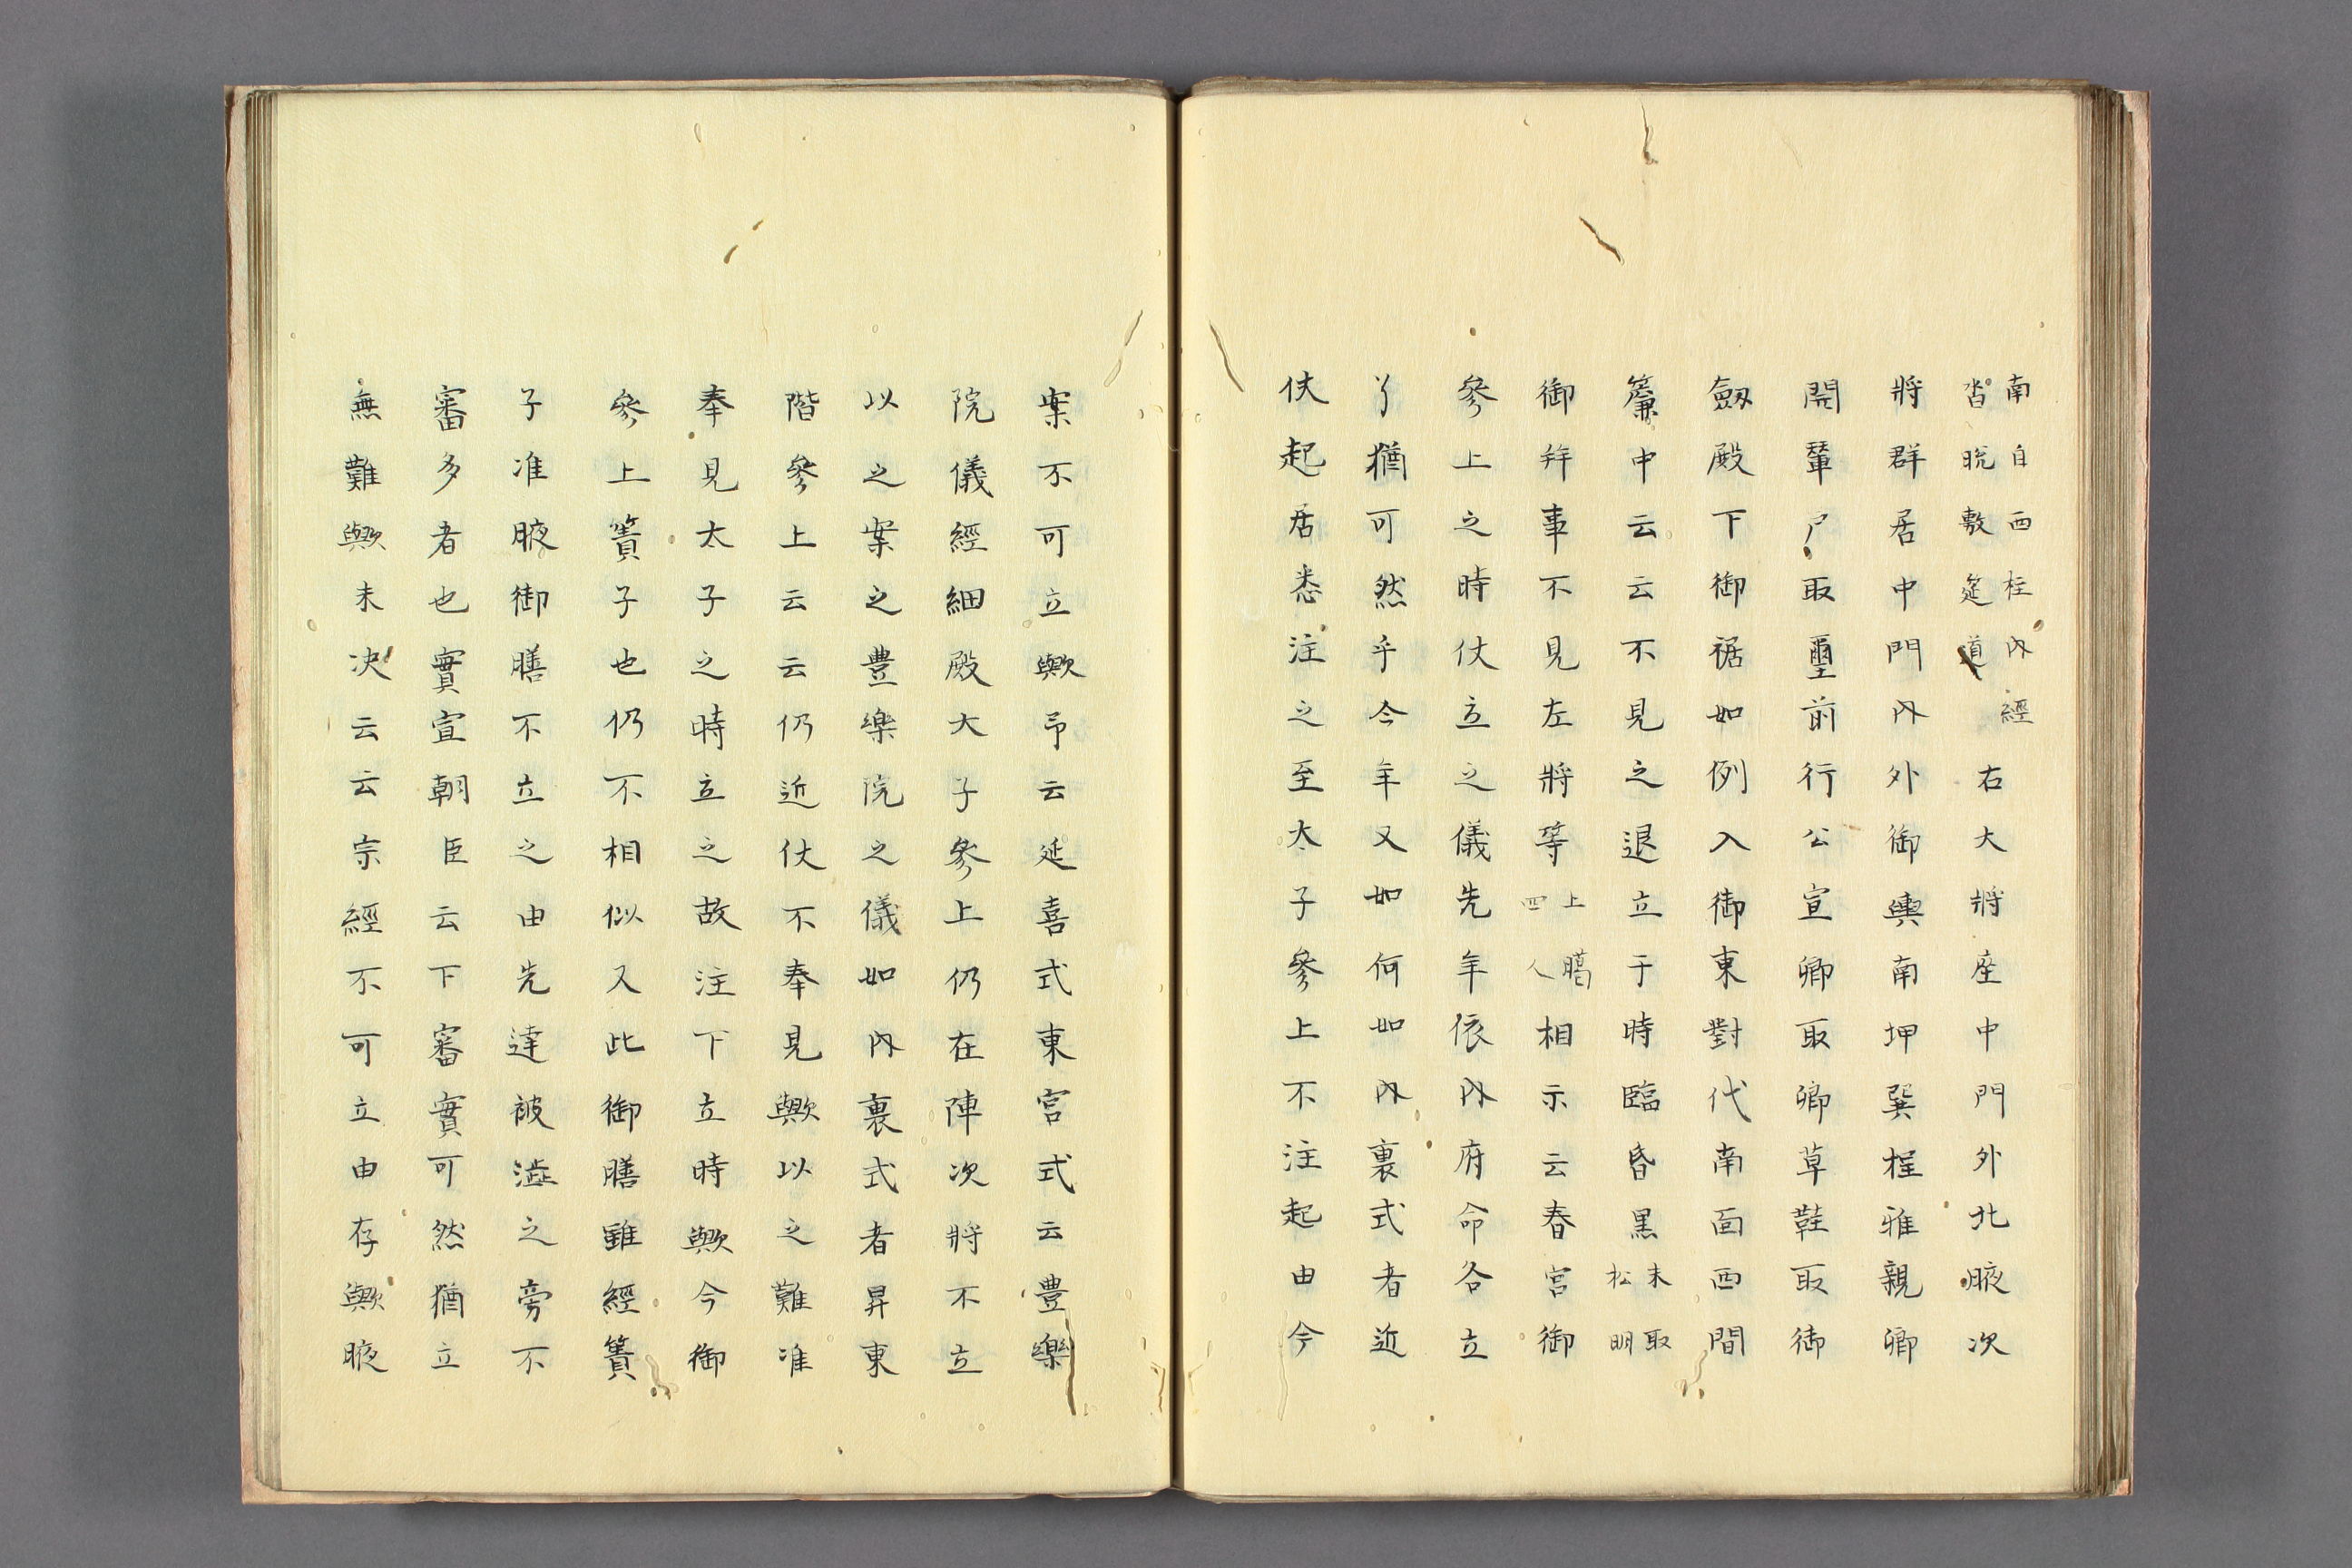 南自西柱內經
沓脱敷筵道
右大將座中門外北腋次
將群居中門內外御輿南坤巽桯雅親卿
開輦戸取璽前行公宣卿取御草鞋取御
劔殿下御裾如例入御東對代南面西間
簾中云云不見之退立于時臨昏黒
未取
松明
御拜事不見左將等
上臈
四人
相示云春宮御
參上之時仗立之儀先年依內府命各立
了猶可然乎今年又如何如內裏式者近
仗起居悉注之至太子參上不注起由今
案不可立歟帋云延喜式東宮式云豊樂
院儀經細殿大子參上仍在陣次將不立
以之案之豊樂院之儀如內裏式者昇東
階參上云云仍近仗不奉見歟以之難准
奉見太子之時立之故注下立時歟今御
參上簀子也仍不相似又此御膳雖經簀
子准腋御膳不立之由先達被澁之旁不
審多者也實宣朝臣云下審實可然猶立
無難歟未決云云宗經不可立由存歟腋